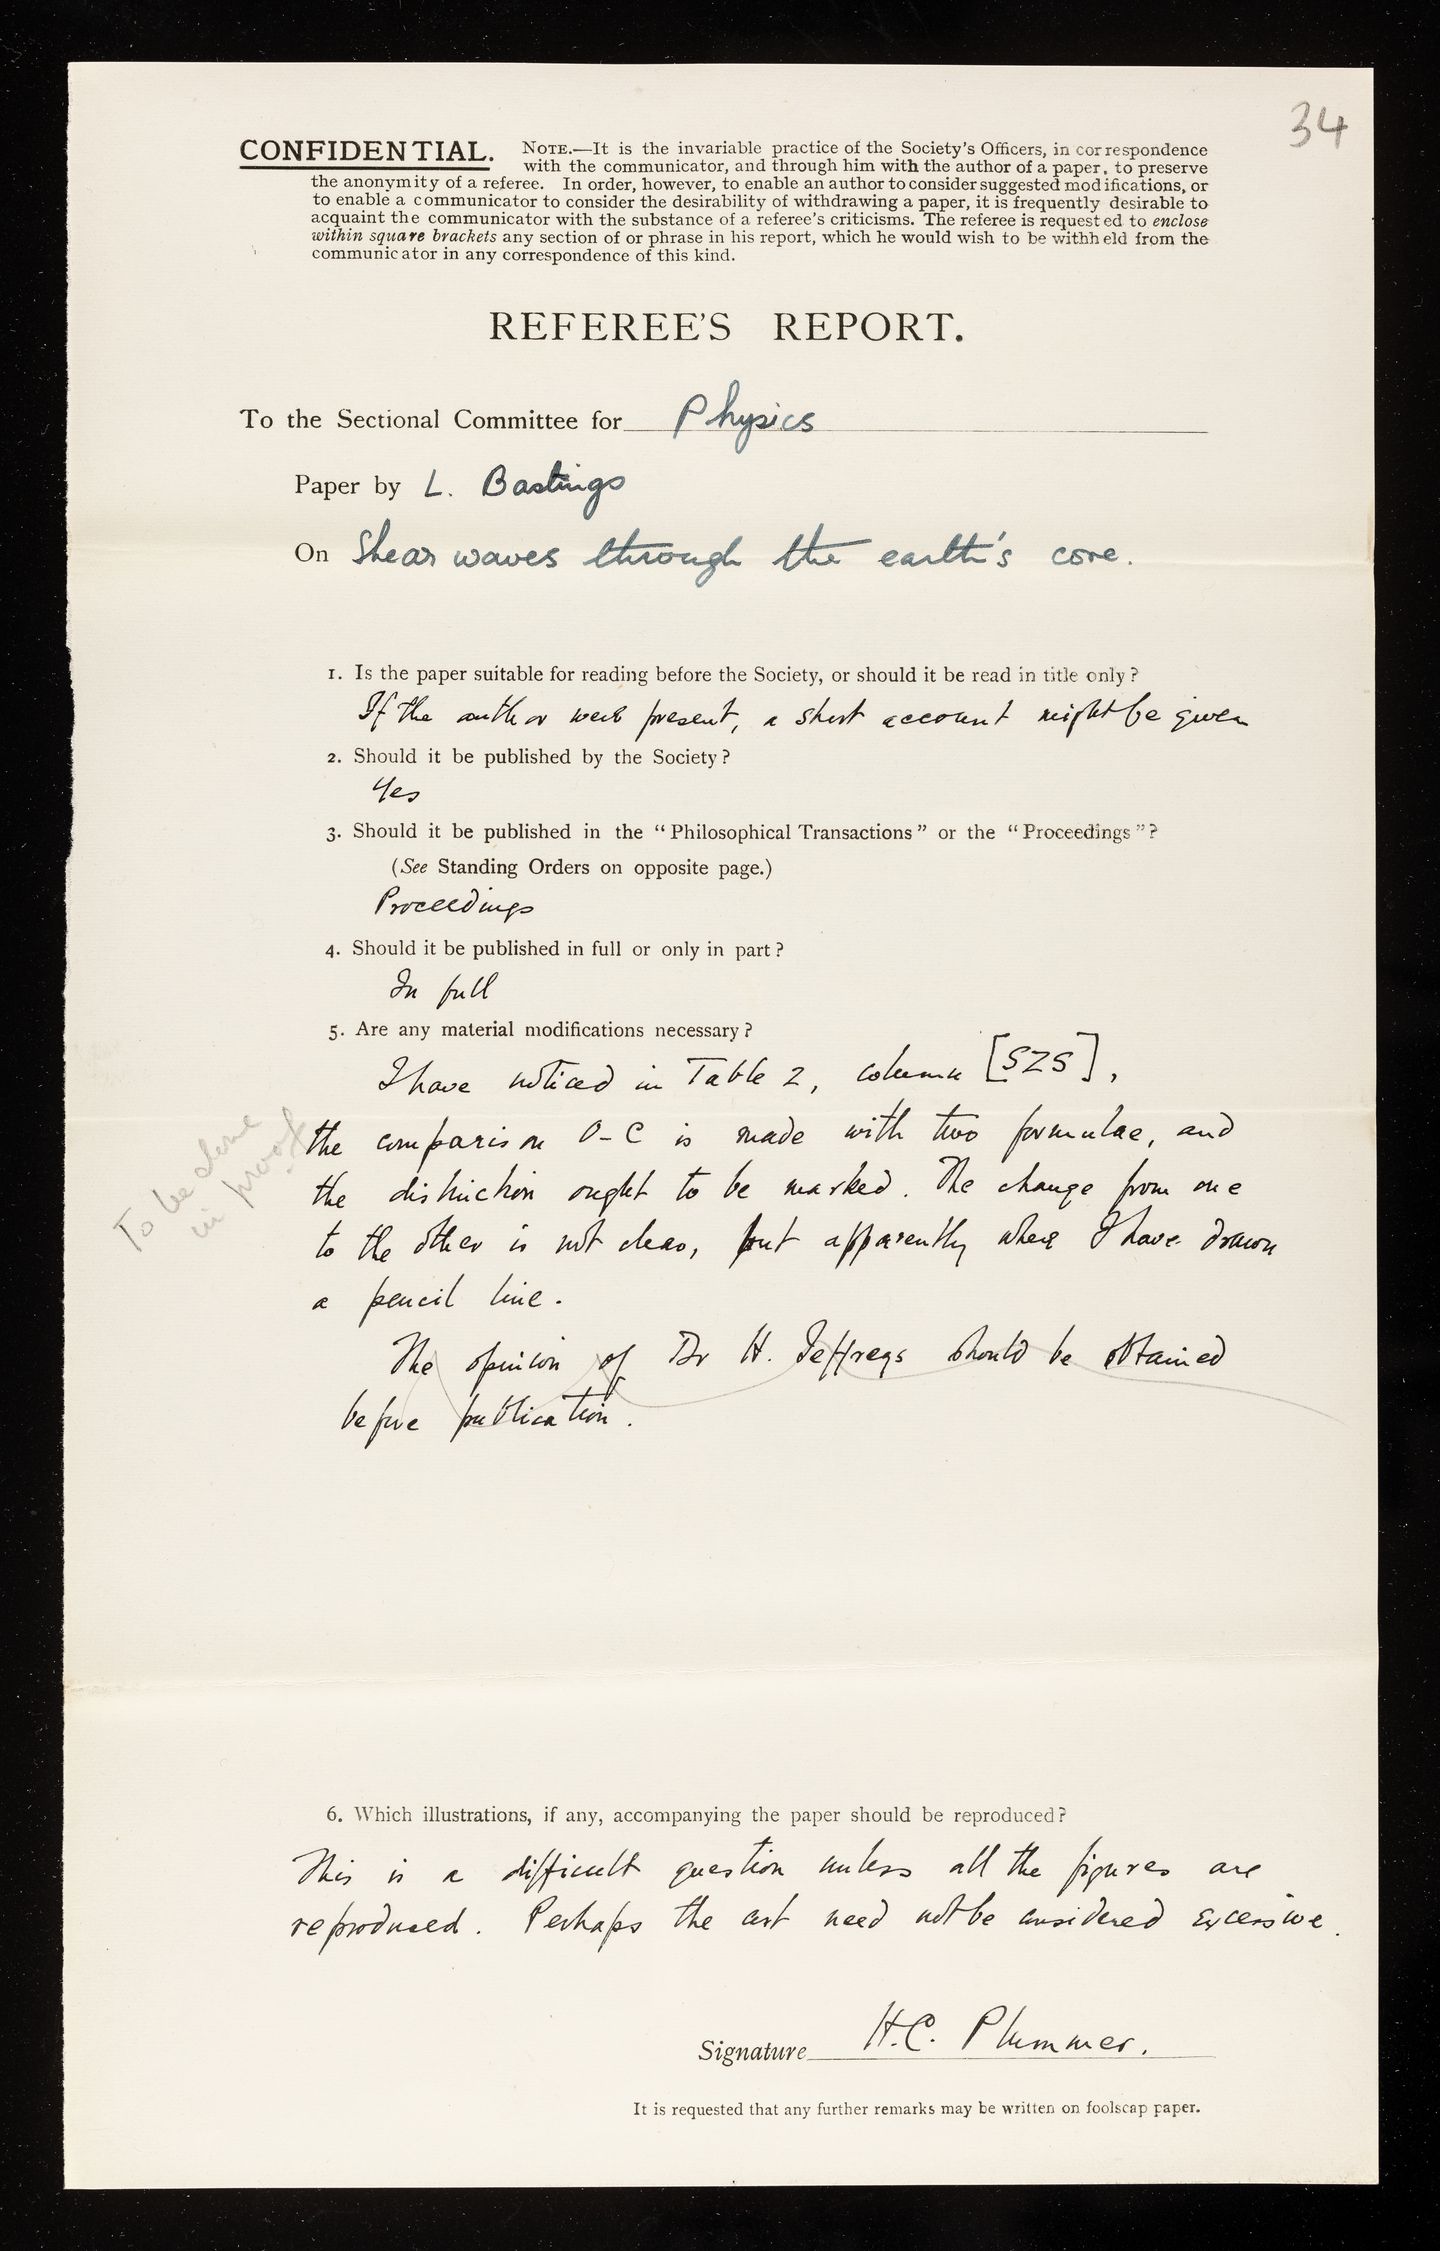 34
CONFIDENTIAL. NOTE.—It is the invariable practice of the Society's Officers, in correspondence
with the communicator, and through him with the author of a paper, to preserve
the anonymity of a referee. In order, however, to enable an author to consider suggested modifications, or
to enable a communicator to consider the desirability of withdrawing a paper, it is frequently desirable to
acquaint the communicator with the substance of a referee's criticisms. The referee is requested to enclose
within square brackets any section of or phrase in his report, which he would wish to be withheld from the
communicator in any correspondence of this kind.
REFEREE'S REPORT.
To the Sectional Committee for Physics
Paper by L. Bastings
On Shear waves through the earth's core.
1. Is the paper suitable for reading before the Society, or should it be read in title only?
If the author were present, a short account might be given
2. Should it be published by the Society?
Yes
3. Should it be published in the "Philosophical Transactions" or the "Proceedings"?
(See Standing Orders on opposite page.)
Proceedings
4. Should it be published in full or only in part?
In full
5. Are any material modifications necessary?
I have noticed in Table 2, column [SZS],
the comparison O-C is made with two formulae, and
the distinction ought to be marked. The change from one
to the other is not clear, but apparently where I have drawn
a pencil line.
To be done
in proof
The opinion of Dr H. Jeffreys should be obtained
before publication.
6. Which illustrations, if any, accompanying the paper should be reproduced?
This is a difficult question unless all the figures are
reproduced. Perhaps the cost need not be considered excessive.
Signature H.C. Plummer.
It is requested that any further remarks may be written on foolscap paper.